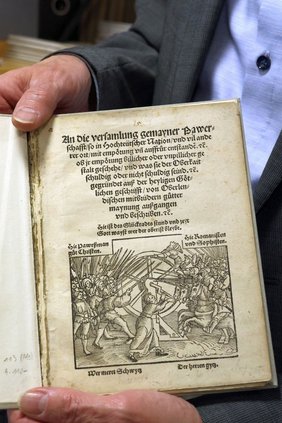 An die versamlung gemayner Pawer-
schafft/so in Hochteütscher Nation/vnd vil ande
rer ort/mit empörũg vñ auffrůr entstandẽ.ꝛc.
ob jr empörung billicher oder vnpillicher ge
stalt geschehe/vnd was sie der Oberkait
schuldig oder nicht schuldig seind.ꝛc.
gegründet auß der heyligen Göt-
lichen geschrifft/von Oberlen-
dischen mitbrüdern gůtter
maynung außgangen
vnd beschriben.ꝛc.
Hie ist des Glückradts stund vnd zeyt
Gott wayst wer der oberist bleybt.
Hie Pawrßman
gůt Christen.
Hie Romanisten
vnd Sophisten.
Wer meret Schwytz
Der herren gytz.